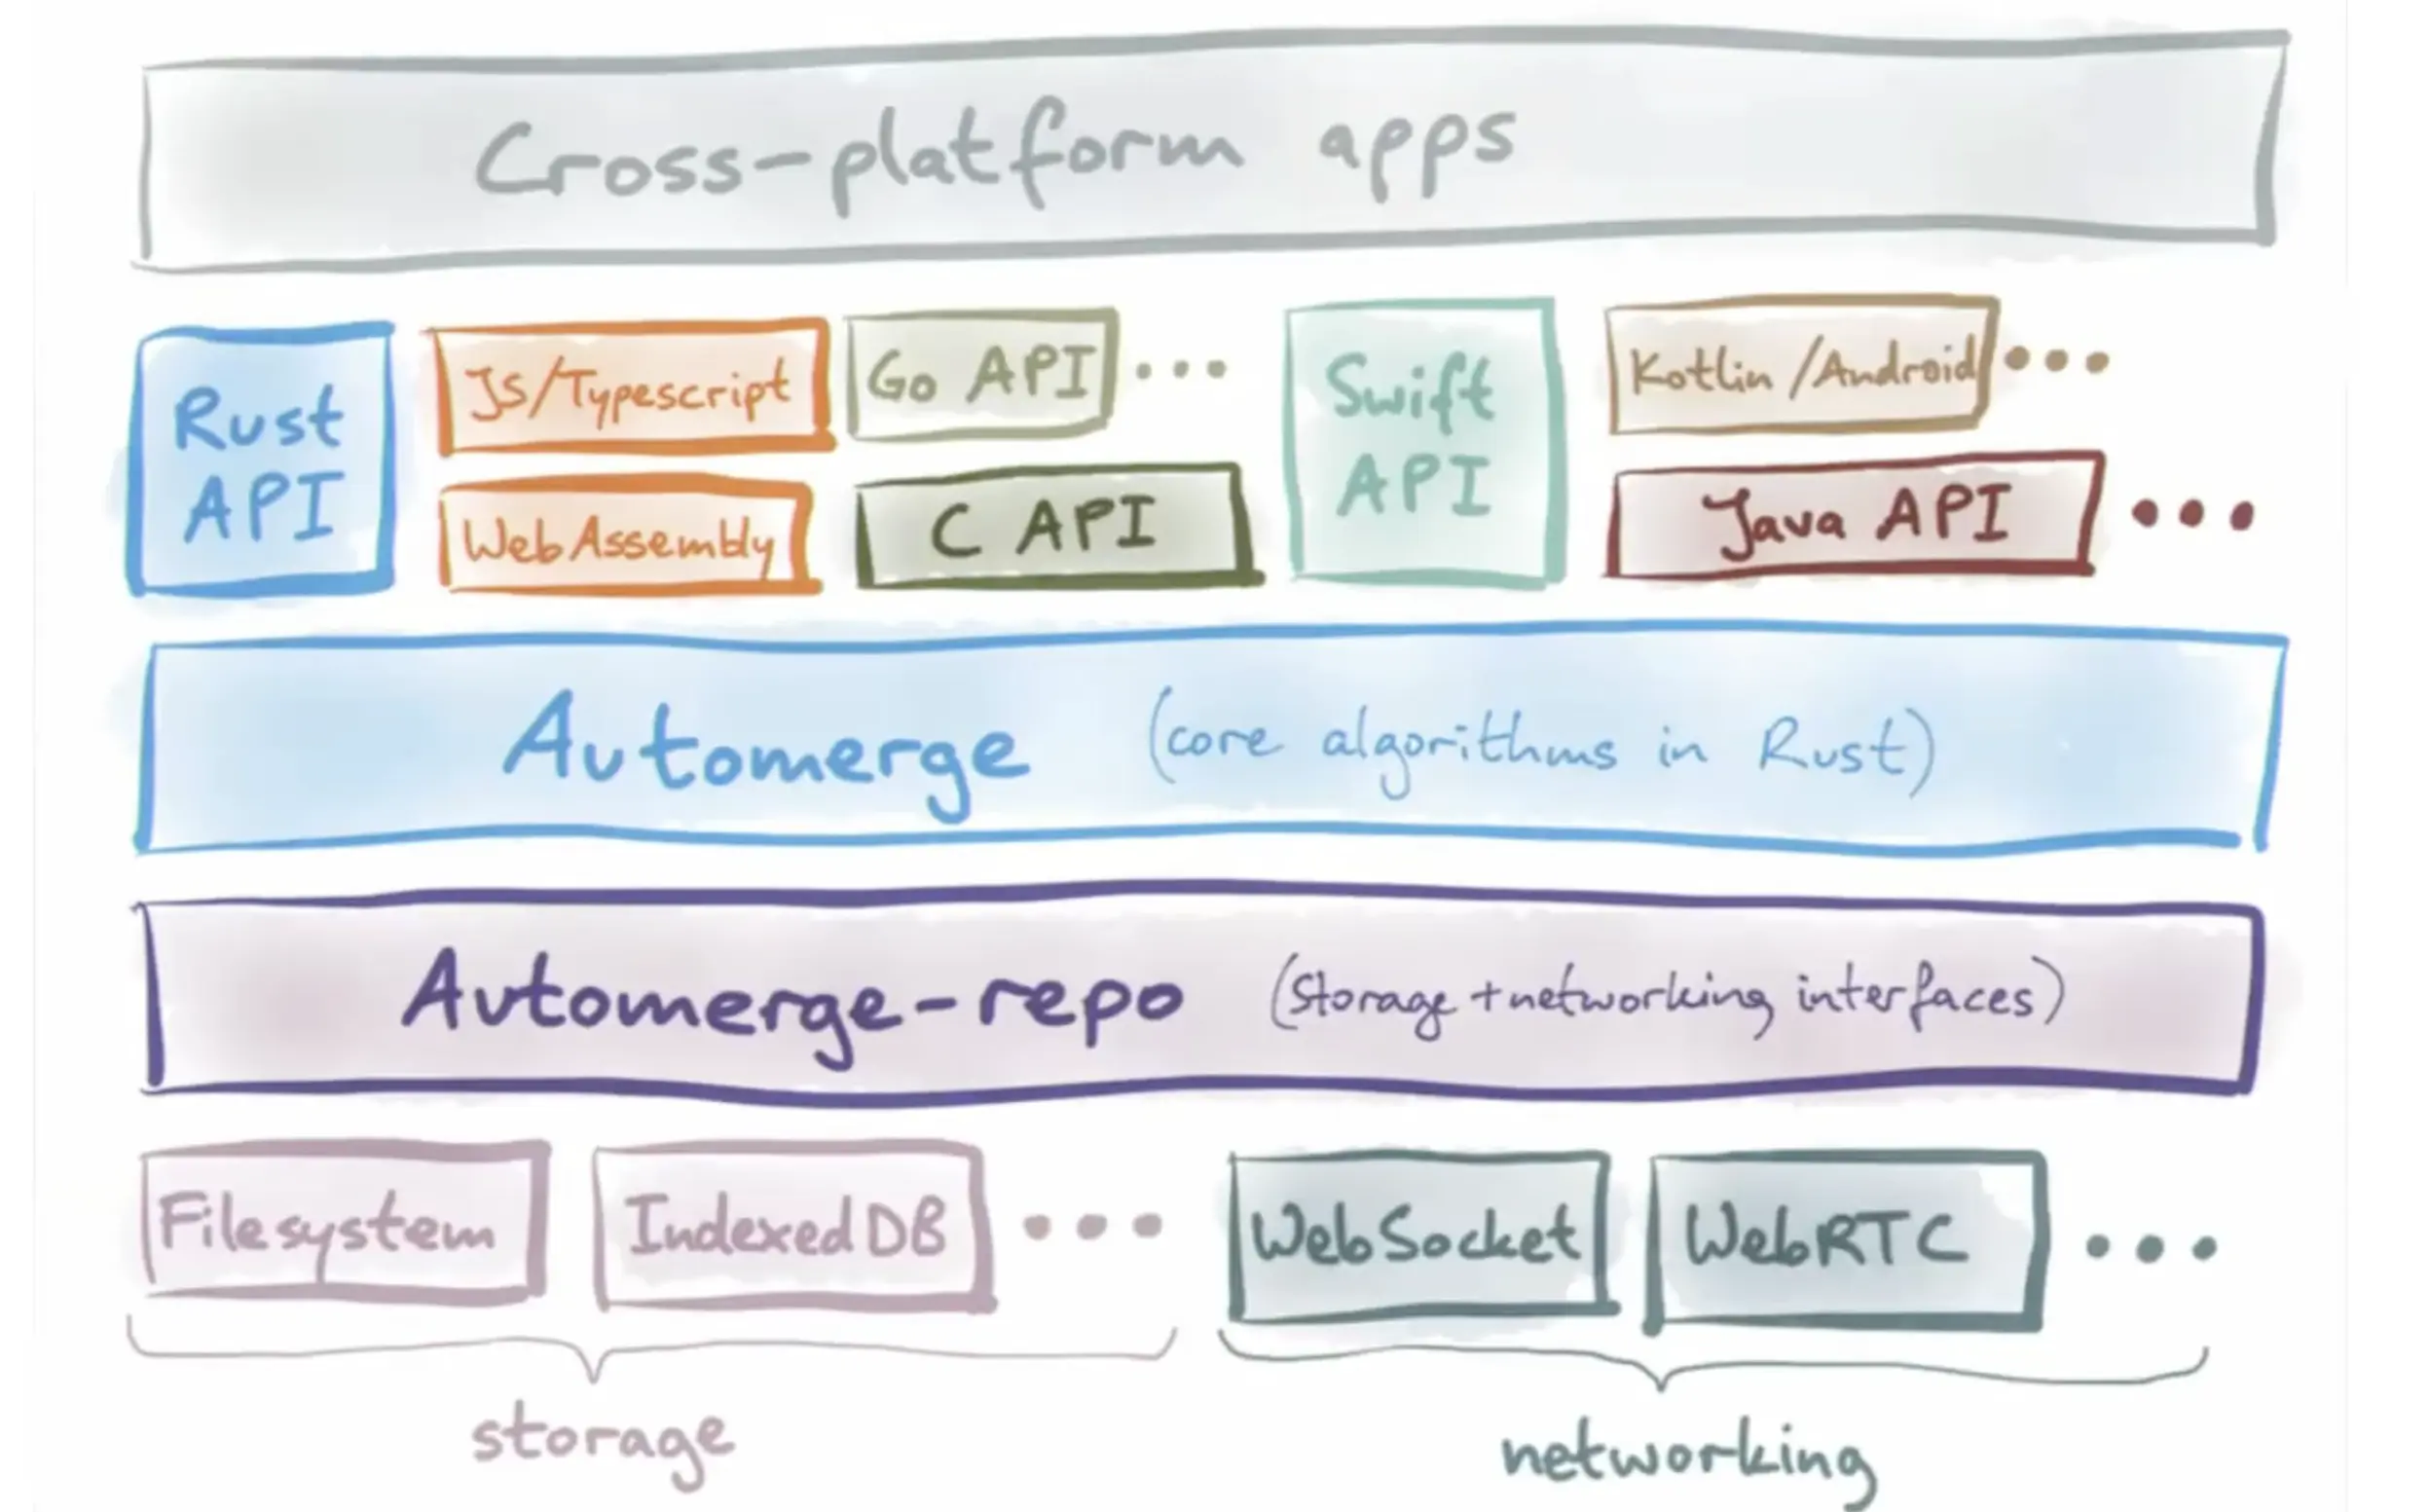 Cross-platform apps
Rust
API
JS/Typescript
WebAssembly
Go API ...
C API
Swift
API
Kotlin/Android ...
Java API ...
Automerge (core algorithms in Rust)
Automerge-repo (storage + networking interfaces)
Filesystem
IndexedDB ...
WebSocket
WebRTC ...
storage
networking